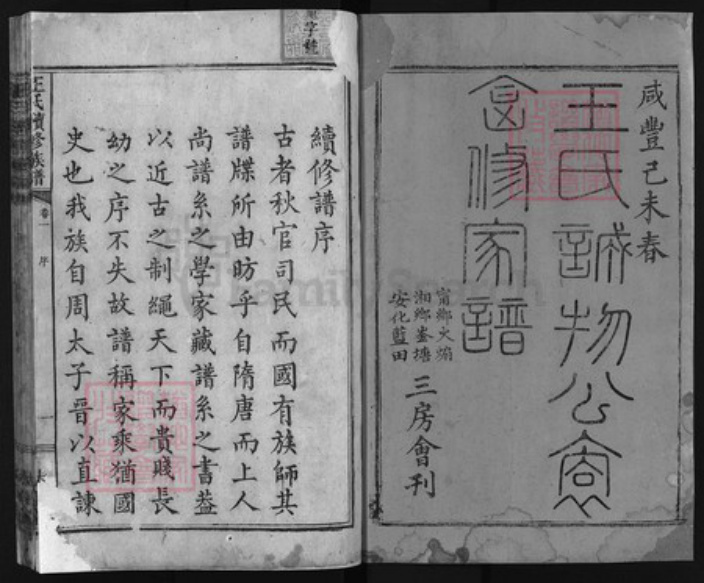 咸豐己未春
王氏誠物公
合修家譜
湘鄉
安化藍田
三房會刊
續修譜序
古者秋官司民而國有族師其
譜牒所由昉乎自隋唐而上人
尚譜系之學家藏譜系之書葢
以近古之制繩天下而貴賤長
幼之序不失故譜稱家乘猶國
史也我族自周太子晉以直諫
王氏續修族譜
卷一
序
FamilySearch